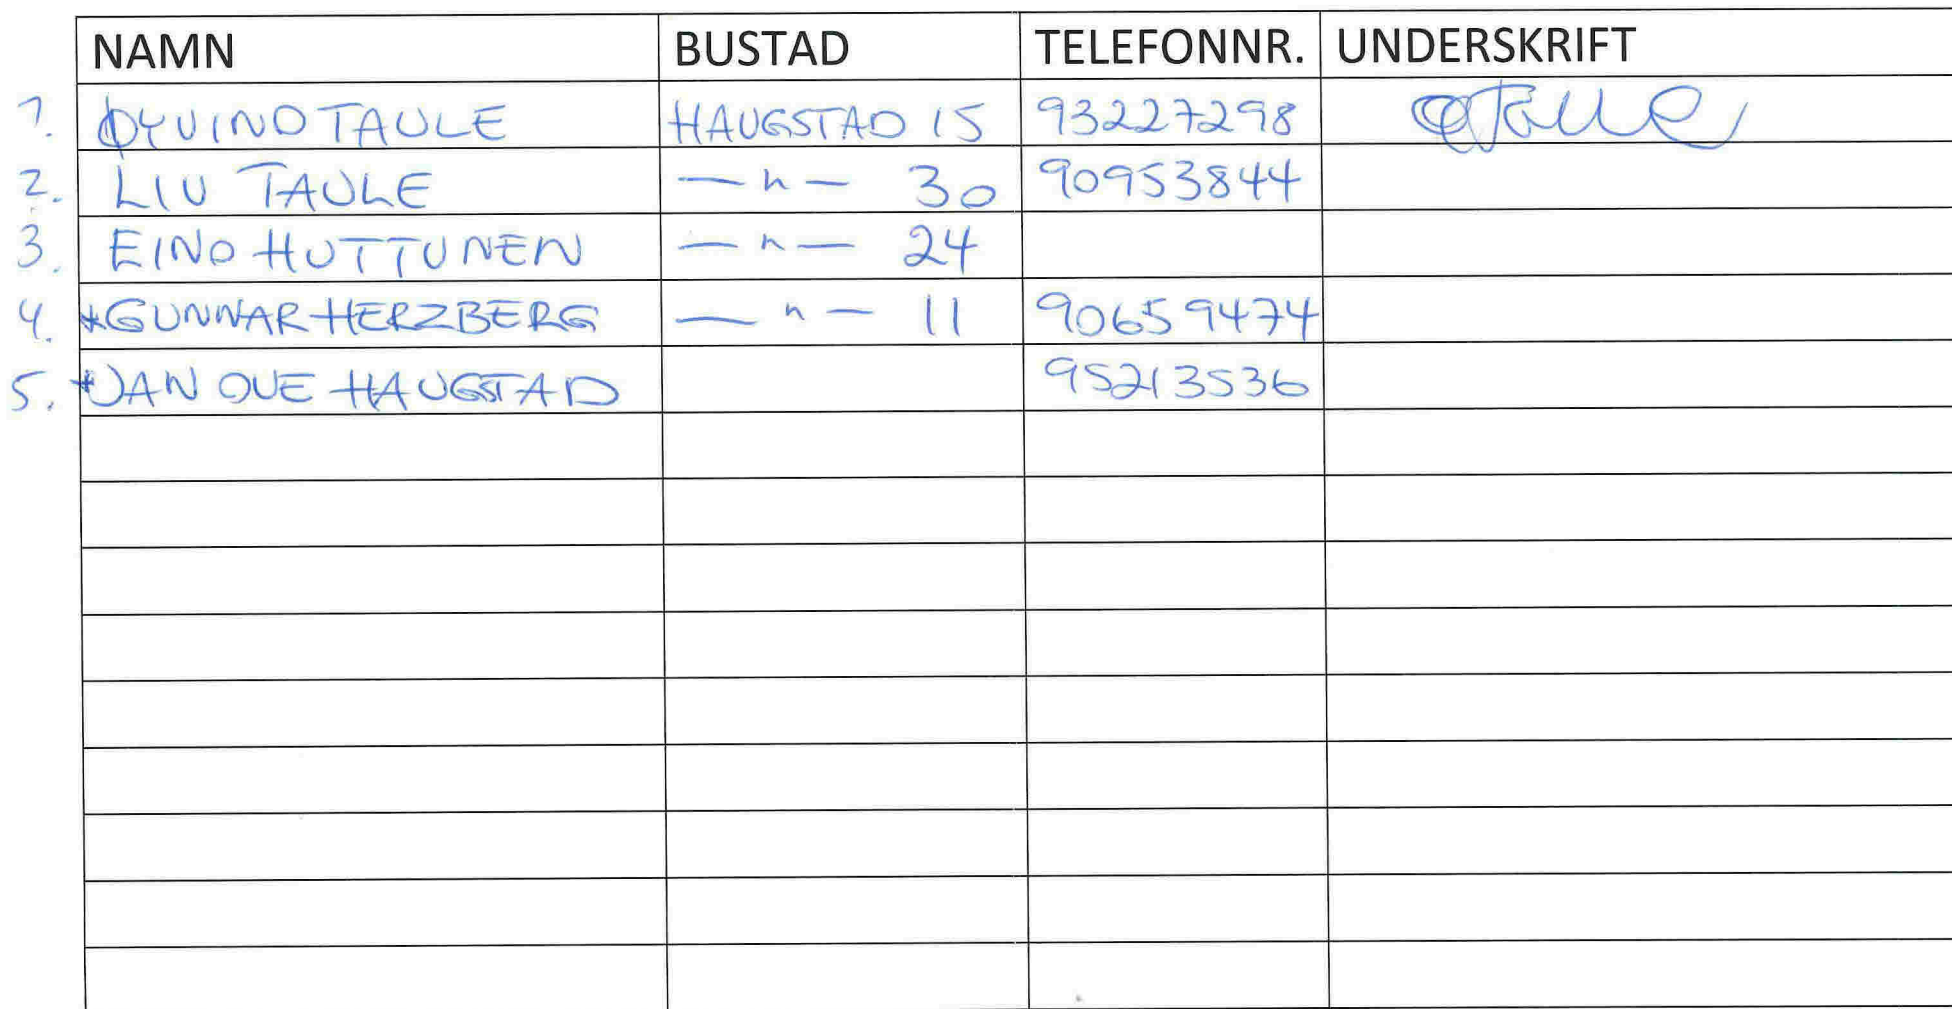 NAMN BUSTAD TELEFONNR. UNDERSKRIFT
1. ØYVIND TAULE HAUGSTAD 15 93227298
2. LIV TAULE — " — 30 90953844
3. EINO HUTTUNEN — " — 24
4. *GUNNAR HERZBERG — " — 11 90659474
5. *JAN OVE HAUGSTAD 95213536